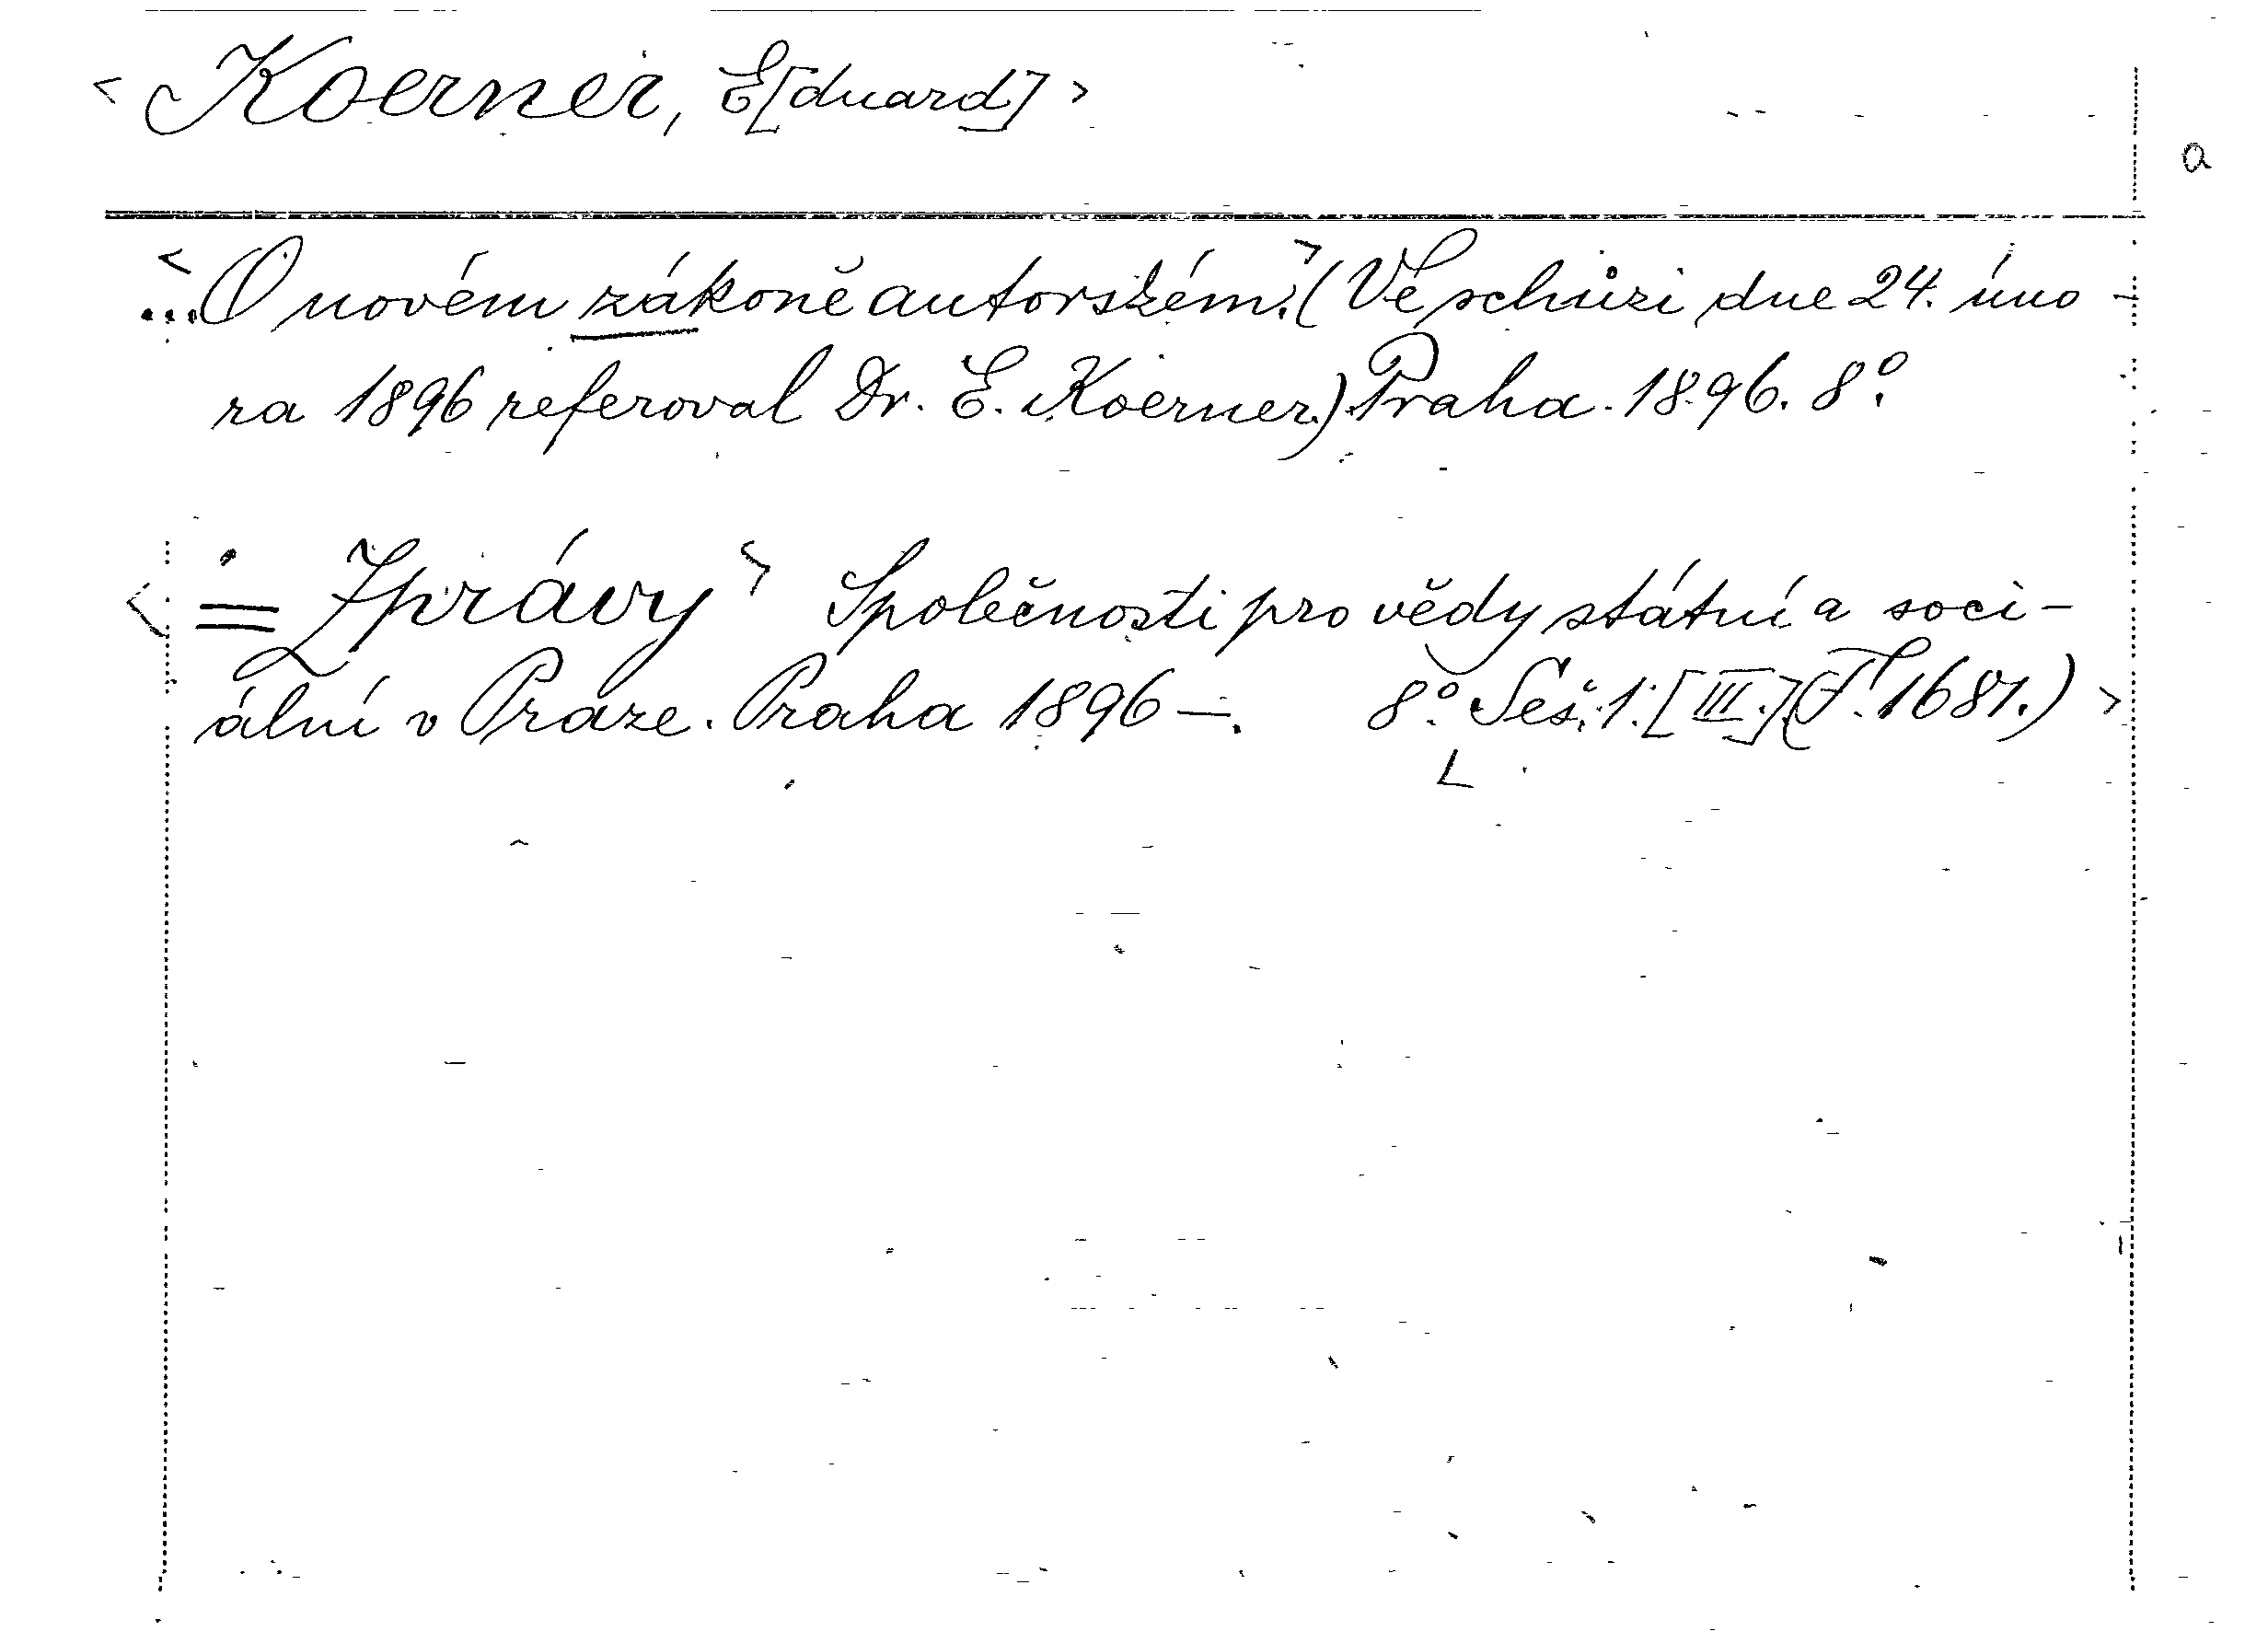 <Koerner, E[duard]>
a
<...O novém zákoně autorském.> (Ve schůzi dne 24. úno-
ra 1896 referoval Dr. E. Koerner.) Praha. 1896. 8º.
<= Zprávy> Společnosti pro vědy státní a soci-
ální v Praze. Praha 1896–. 8º. Seš. 1. [III.] (F. 1681.)>